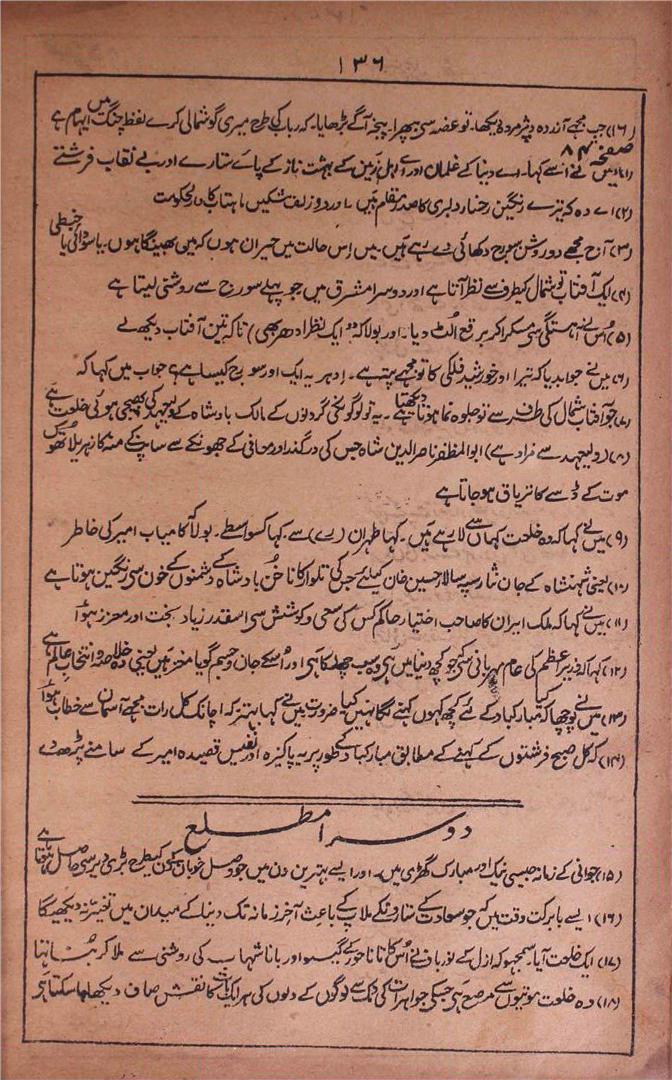 ۱۳۶
(۱۶) جب مجھے آزردہ و پژمردہ دیکھا۔ تو غصہ سی بپھرا۔ پنجہ آگے بڑھایا۔ کہ رباب کی طرح میری گوشمالی کرے لفظ چنگ میں ایہام ہے
صفحہ ۸۴
(۱) میں نے اُسے کہا۔ اے دنیا کے غلمان اور اے اہل زمین کے بہشت ناز کے پائے ستارے اور بے نقاب فرشتے
(۲) اے وہ کہ تیرے رنگین رخسار دلبری کا صدر مقام ہیں اور دو زلف مشکیں ماہتاب کا دار الحکومت
(۳) آج مجھے دو روشن سورج دکھائی دے رہے ہیں۔ میں اِس حالت میں حیران ہوں کہ میں بھینگا ہوں۔ یا سودائی یا خبطی
(۴) ایک آفتاب تو شمال کیطرف سے نظر آتا ہے اور دوسرا مشرق میں جو پہلے سورج سے روشنی لیتا ہے
(۵) اُس نے آہستگی سی مسکرا کر برقع اُلٹ دیا۔ اور بولا کہ (ایک نظر ادھر بھی) تاکہ تین آفتاب دیکھ لے
(۶) میں نے جواب دیا کہ تیرا اور خورشید فلکی کا تو مجھے پتہ ہے۔ اِدہر یہ ایک اور سورج کیسا ہے؟ جواب میں کہا کہ
(۷) جو آفتاب شمال کی طرف سے تو جلوہ نما ہوتا دیکھتا ہے۔ یہ تو لوگونکی گردنوں کے مالک بادشاہ کے ولیعہد کی بھیجی ہوئی خلعت ہے
(۸) (ولیعہد سے مراد ہے) ابوالمظفر ناصر الدین شاہ جس کی درگذر اور معافی کے جھونکے سے سانپ کے منہ کا زہریلا تھوک
موت کے ڈسے کا تریاق ہو جاتا ہے
(۹) میں نے کہا کہ وہ خلعت کہاں سے لا رہے ہیں۔ کہا طہران (رے) سے۔ کہا کسواسطے۔ بولا کامیاب امیر کی خاطر
(۱۰) یعنی شہنشاہ کے جان نثار سپہ سالار حسین خان کیلئے جس کی تلوار کا ناخن بادشاہ کے دشمنوں کے خون سی رنگین ہوتا ہے
(۱۱) میں نے کہا کہ ملک ایران کا صاحب اختیار حاکم کس کی سعی و کوشش سی اسقدر زیادہ بخت اور معزز ہوا
(۱۲) کہا کہ وزیر اعظم کی عام مہربانی سی کہ جو کچھ دنیا میں ہی وہ سب چھلکا ہی اور اُسکے جان و جسم گویا مغز ہیں یعنی وہ خلاصہ و انتخاب عالم ہے
(۱۳) میں نے پوچھا کہ کیا مبارکباد کے لئے کچھ کہوں کہنے لگا نہیں کیا ضرورت میں نے کہا بہتر کہ اچانک کل رات مجھے آسمان سے خطاب ہوا
(۱۴) کہ کل صبح فرشتوں کے کہنے کے مطابق مبارکباد کے طور پر یہ پاکیزہ اور نفیس قصیدہ امیر کے سامنے پڑھ دے
دوسرا مطلع
(۱۵) جوانی کے زمانہ جیسی نیک اور مبارک گھڑی میں۔ اور ایسے بہترین دن میں جو وصل خوباں کیطرح بڑی دیر سی حاصل ہوتا ہے
(۱۶) ایسے بابرکت وقت میں کہ جو سعادت کے ستارونکے ملاپ کے باعث آخر زمانہ تک دنیا کے میدان میں تغیّر نہ دیکھیگا
(۱۷) ایک خلعت آیا۔ سمجھو کہ ازل کے نور باف نے اُس کا تانا حور کے گیسو اور بانا شہاب کی روشنی سے ملا کر بُنا تھا
(۱۸) وہ خلعت موتیوں سے مرصع ہی جسکی جواہرات کی چمک سے لوگوں کے دلوں کی ہر ایک بات کا نقش صاف دیکھا جا سکتا ہی